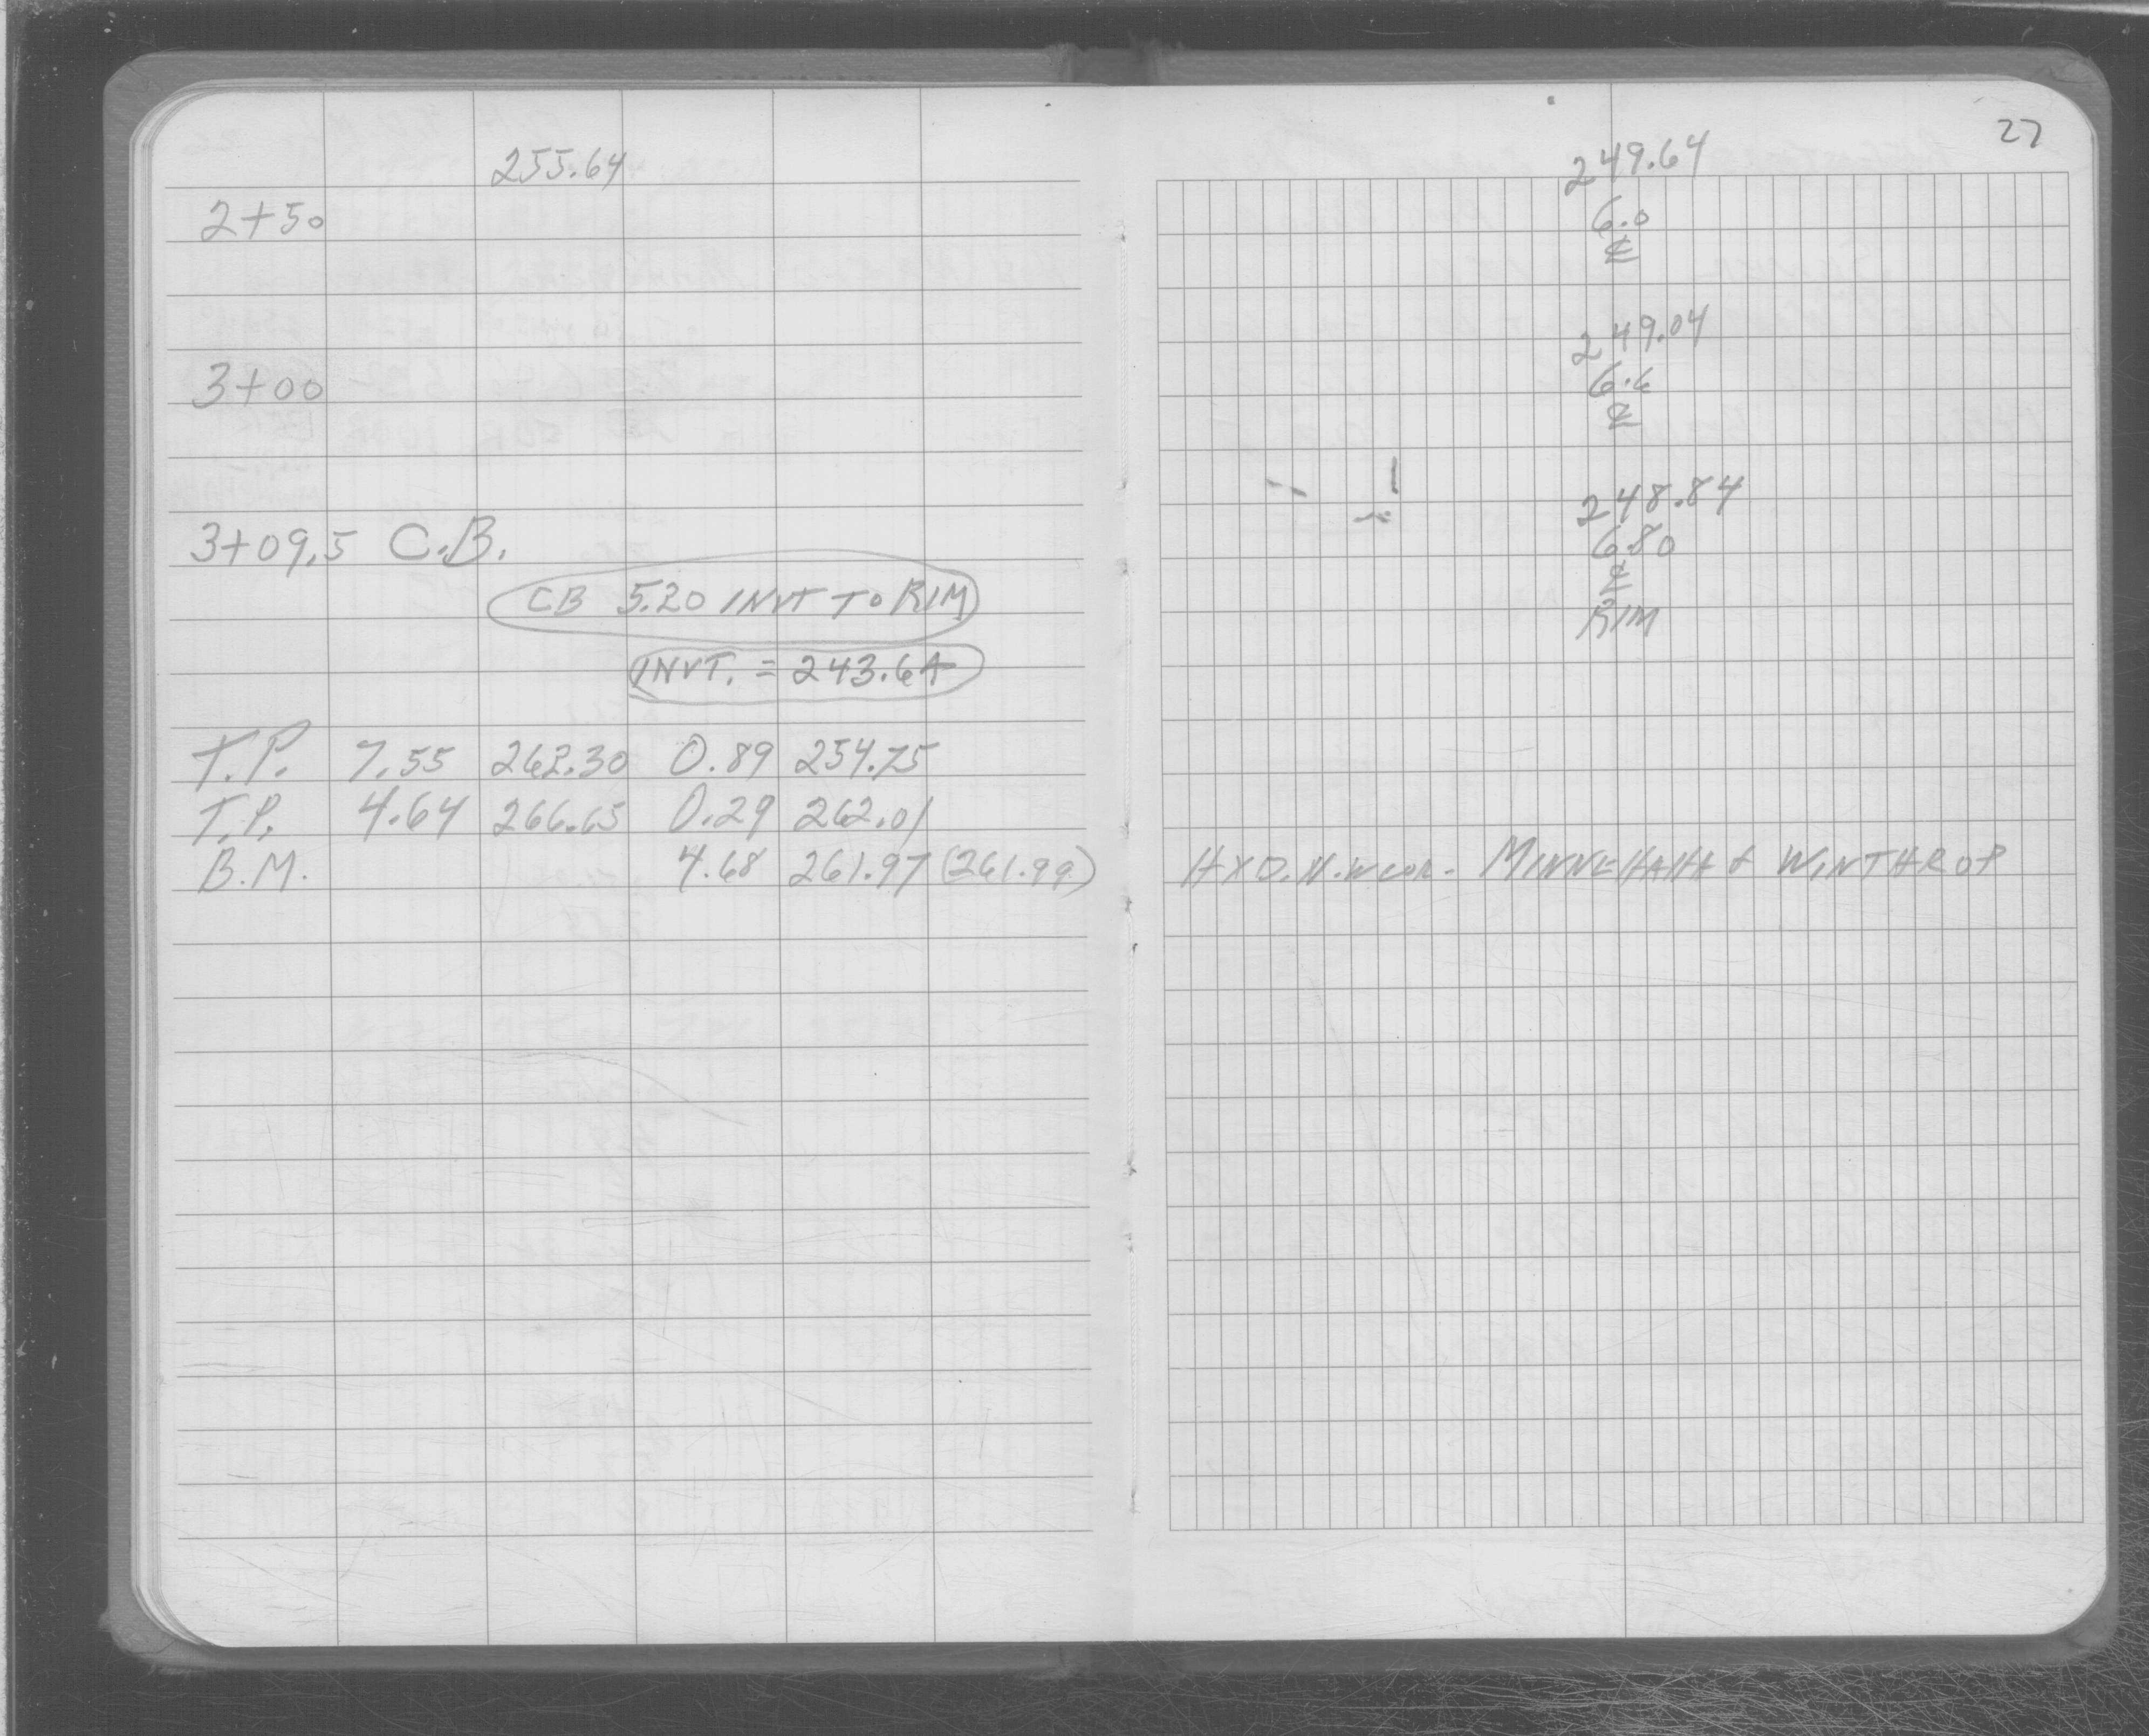 255.64
2+50
3+00
3+09.5 C.B.
CB 5.20 INVT TO RIM
INVT. = 243.64
T.P. 7.55 262.30 0.89 254.75
T.P. 4.64 266.65 0.29 262.01
B.M. 4.68 261.97 (261.99)
27
249.64
6.0
℄
249.04
6.6
℄
248.84
6.80
℄
RIM
HYD. N.W COR. MINNEHAHA & WINTHROP